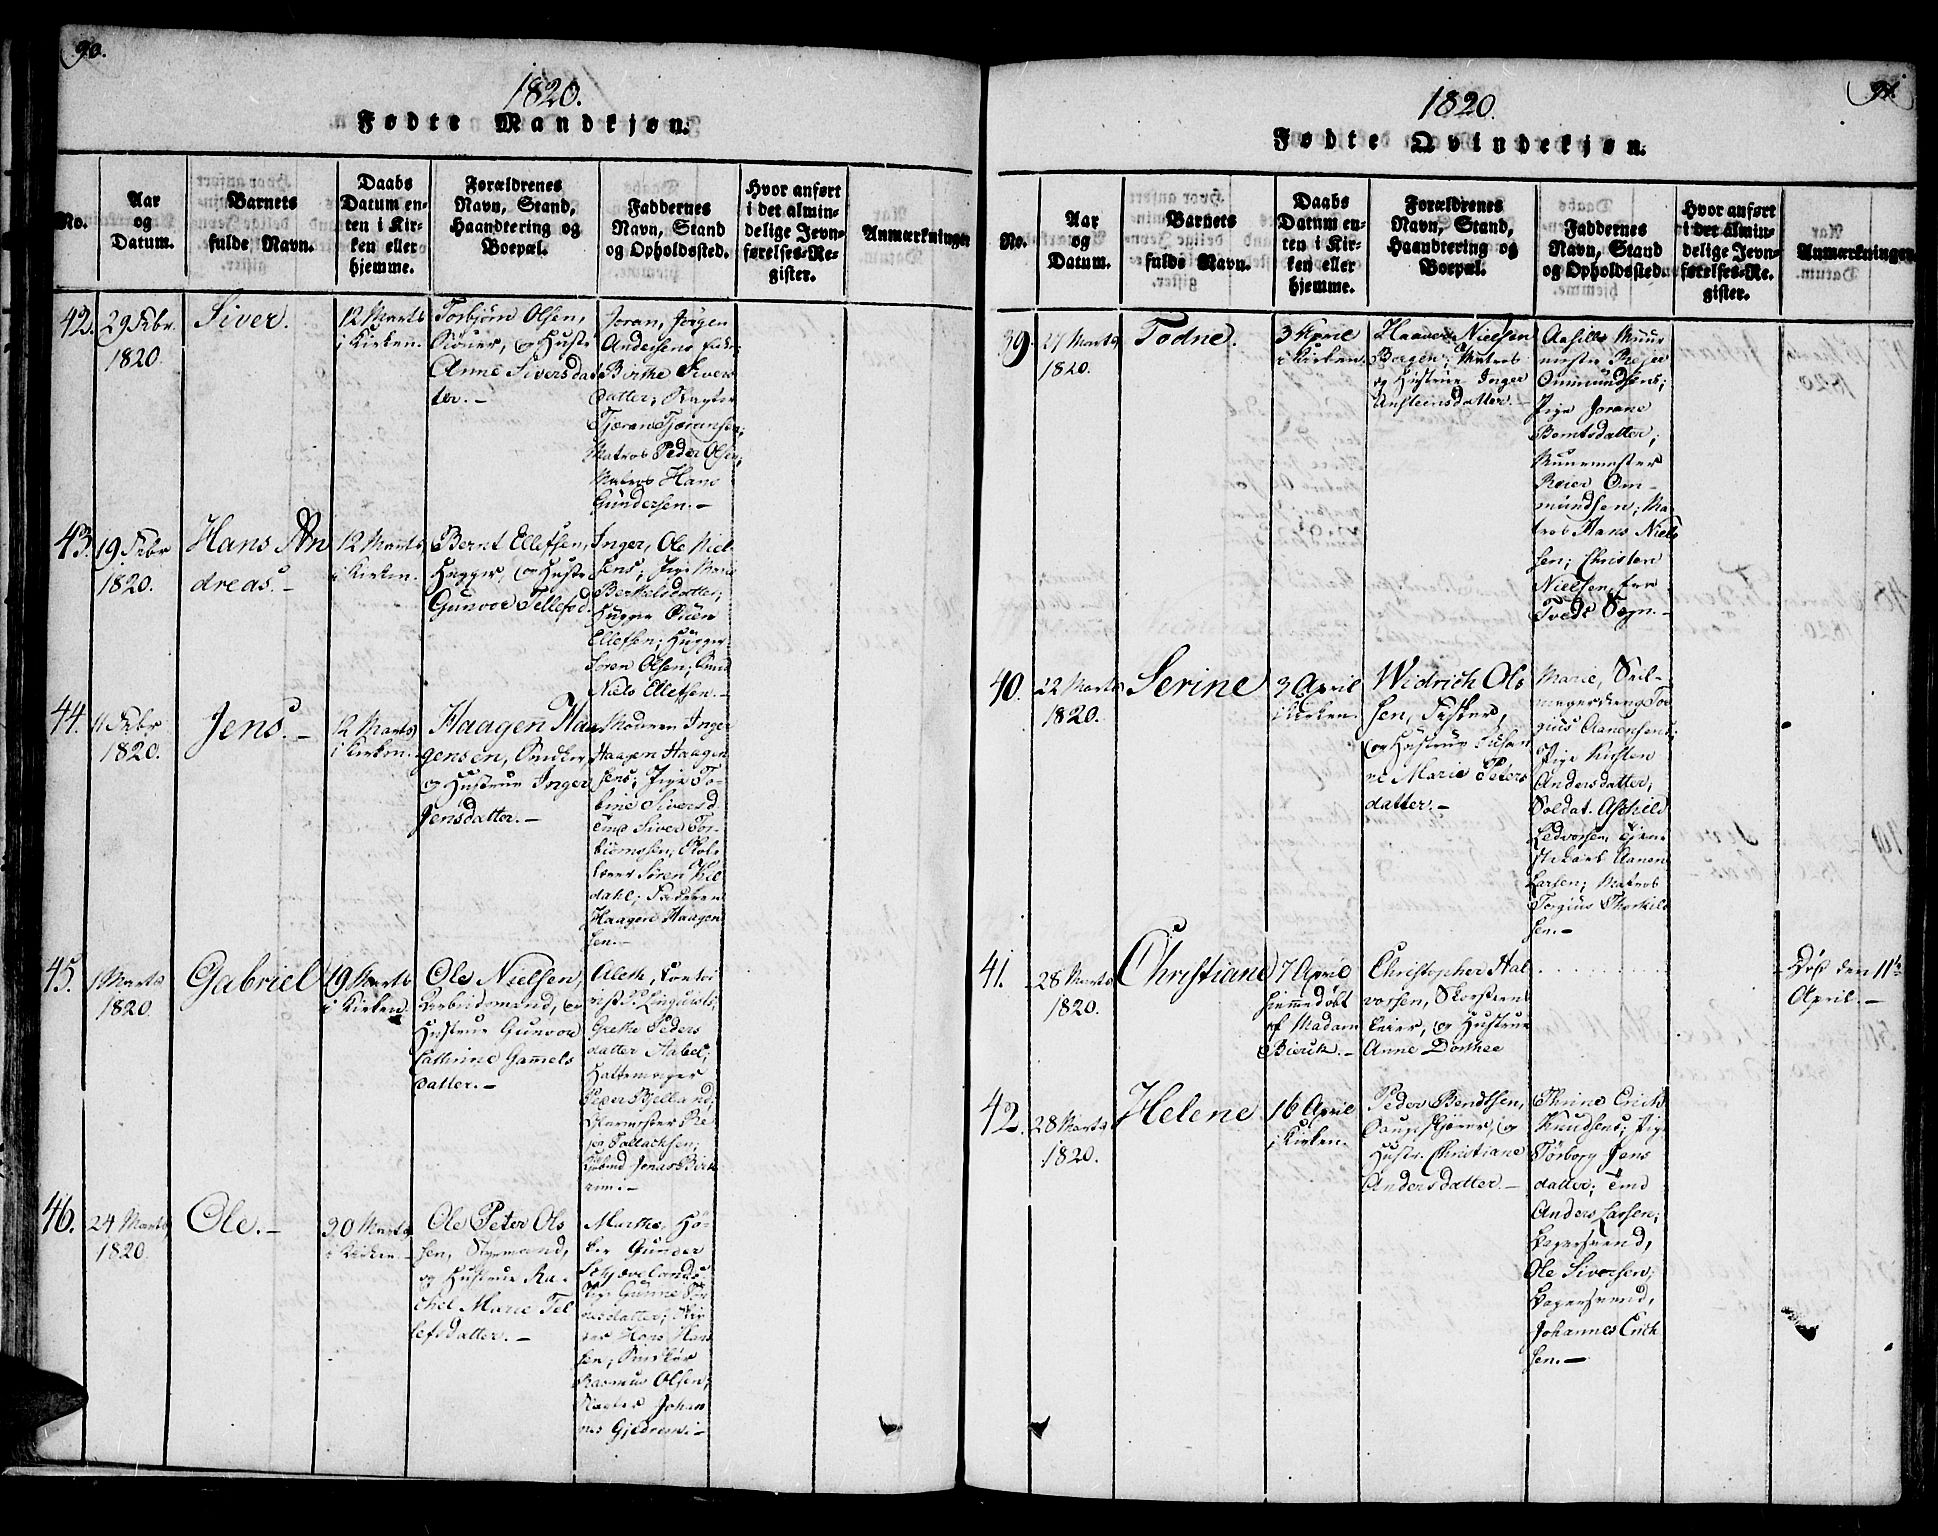 90.
1820.
Fødte Mandkjøn.
No.
Aar
og
Datum.
Barnets
fulde Navn.
Daabs
Datum en-
ten i Kir-
ken eller
hjemme.
Forældrenes
Navn, Stand,
Haandtering og
Boepæl.
Faddernes
Navn, Stand
og Opholdssted.
Hvor anført
i det almin-
delige Jevn-
førelses-Re-
gister.
Anmærkninger
42.
29 Febr.
1820.
Siver.
12 Marts
i Kirken.
Torbjørn Olsen,
og Hustr
Anne Siversdat
ter.-
Joran, Jørgen
Andersens
Birthe Sivers
datter;
Tjøran Tjøransen;
Matros Peder Olsen;
Matros Hans
Gundersen.-
43.
19 Febr
1820.
Hans An
dreas.-
12 Marts
i Kirken.
Bernt Ellefsen,
Hugger, og Hustr
Gunvor Tellefsd.
Inger, Ole Niel-
sens; Pige Marie
datter;
Hugger
Ellefsen; Hugger
Søren Olsen;
Niels Ellefsen.-
44.
11 Febr
1820.
Jens.-
12 Marts
i Kirken.
Haagen Haa
gensen, Snider,
og Hustrue Inger
Jensdatter.-
Moderen Inger
Haagen Haagen
sens; Pige To-
bine Siversd.
Siver Tor-
biørnsen;
Søren
dahl; Faderen
Haagen Haagen
sen.-
45.
1 Marts
1820.
Gabriel
19 Marts
i Kirken.
Ole Nielsen,
Arbeidsmand, og
Hustrue Gunvor
Cathrine Gammels
datter.-
Alethe,
Grethe Peders
datter Aabel;
Hattemager
Peder Bjelland;
Tallachsen;
Jonas Birk
rem.-
46.
24 Marts
1820.
Ole.-
30 Marts
i Kirken-
Ole Peter Ols
sen, Styrmand,
og Hustrue Ra-
chel Marie Tel
lefsdatter.-
Marthe, Hø-
ker Gunder
lands;
Pige Gunne
datter;
Hans Han
sen;
Rasmus Olsen;
Johan
nes Gjedrem.-
91.
1820.
Fødte Qvindekjøn.
No.
Aar
og
Datum.
Barnets
fulde Navn.
Daabs
Datum en-
ten i Kir-
ken eller
hjemme.
Forældrenes
Navn, Stand,
Haandtering og
Boepæl.
Faddernes
Navn, Stand
og Opholdssted.
Hvor anført
i det almin-
delige Jevn-
førelses-Re-
gister.
Anmærkninger
39.
27 Marts
1820.
Todne.
3 April
i Kirken.
Haaver Nielsen
Matros
og Hustrue Inger
Ansteensdatter.-
Aasille Muur
mester Reier
Ommundsens;
Pige Jorane
Berntsdatter;
Muurmester
Reier Om-
mundsen; Ma-
tros Hans Niel
sen; Christen
Nielsen,
Tvedt Sogn.-
40.
22 Marts
1820.
Serine
3 April
i Kirken.
Widrich Ols
sen, Fisker,
og Hustrue
Marie Peters
datter.-
Marie, Seil-
magerdreng Tor
gius Aanensens;
Pige Kirsten
Andersdatter;
Soldat Aschild
Ledvorsen,
Aanen
Larsen; Matros
Torgius Thorkild
sen.-
41.
28 Marts
1820.
Christiane
7 April
hiemmedøbt
af Madam
Bierck.-
Christopher Hal
vorsen, Skorsteens
feier, og Hustrue
Anne Dorthee
Død den 11te
April.-
42.
28 Marts
1820.
Helene
16 April
i Kirken.
Peder Bendtsen,
Saugskjærer, og
Hustr. Christiane
Andersdatter.-
Thrine Erich
Knudsens; Pige
Torborg Jens
datter;
Anders Larsen;
Bagersvend,
Ole Siversen;
Bagersvend,
Johannes Erich
sen.-